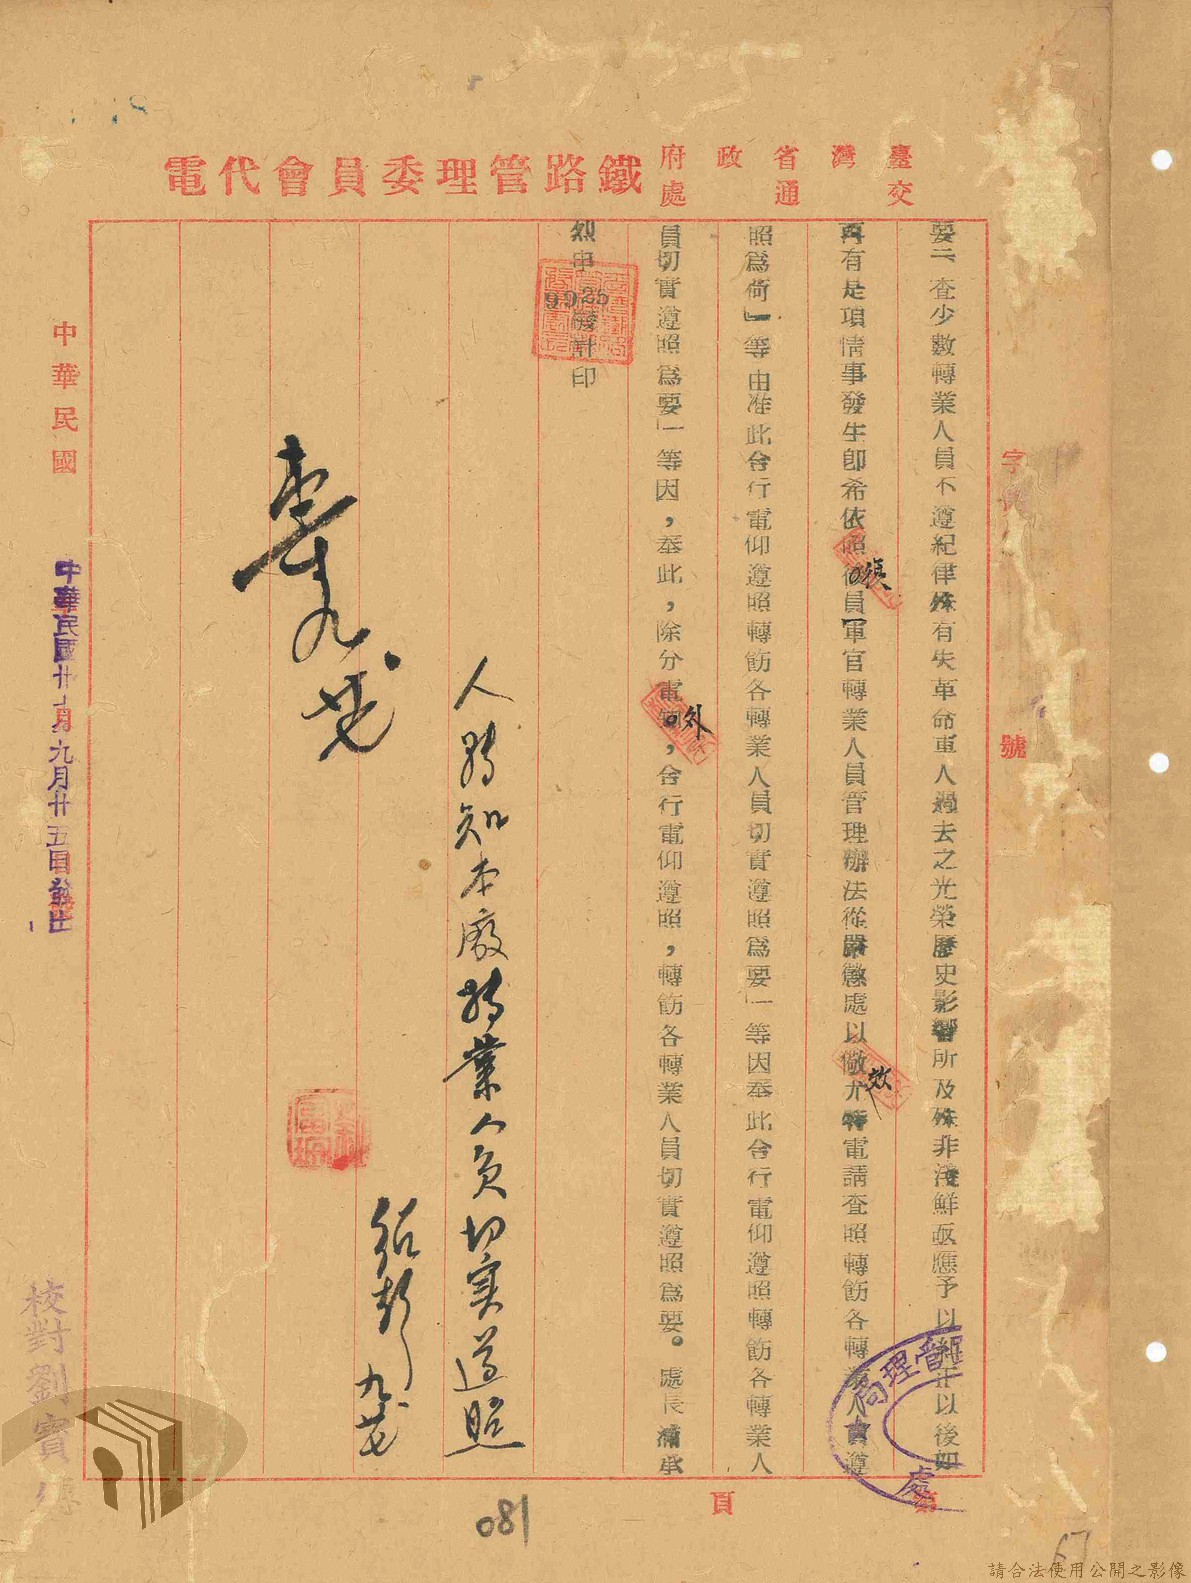 臺灣省政府交通處
鐵路管理委員會代電
字 號
要二、查少數轉業人員不遵紀律殊有失革命軍人過去之光榮歷史影響所及殊非淺鮮亟應予以糾正以後如
再有是項情事發生卽希依照復員軍官轉業人員管理辦法從嚴懲處以儆效尤特電請查照轉飭各轉業人員遵
照爲荷」等由准此合行電仰遵照轉飭各轉業人員切實遵照爲要」等因奉此合行電仰遵照轉飭各轉業人
員切實遵照爲要」等因，奉此，除分電外，合行電仰遵照，轉飭各轉業人員切實遵照爲要。處長
烈申
9925
計印
人轉知本廠轉業人員切实遵照
九廿七
九廿七
中華民國
中華民國卅 年九月廿五日發出
校對劉寶
管理局
處
第 頁
081
67
請合法使用公開之影像